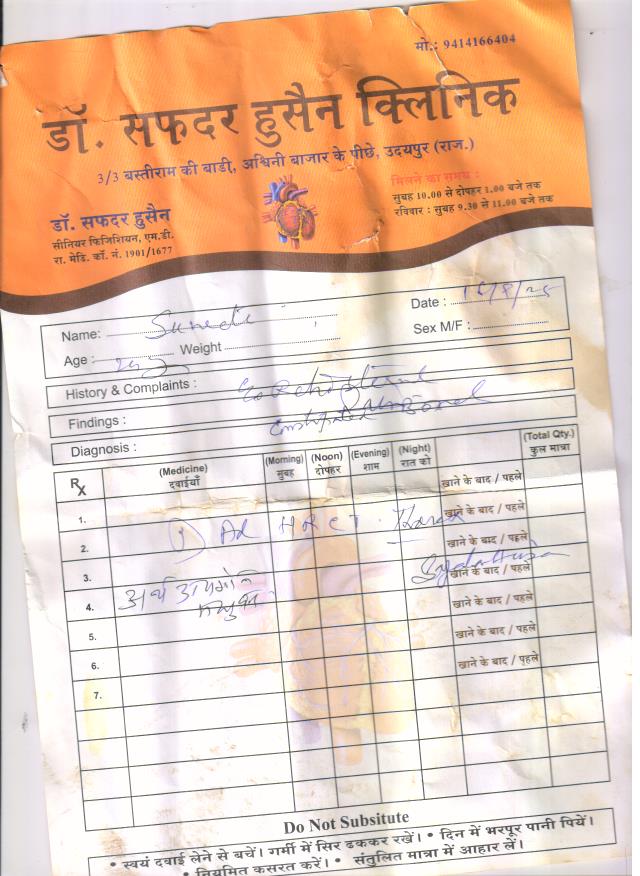 मो.: 9414166404
डॉ. सफदर हुसैन क्लिनिक
3/3 बस्तीराम की बाडी, अश्विनी बाजार के पीछे, उदयपुर (राज.)
मिलने का समय :
सुबह 10.00 से दोपहर 1.00 बजे तक
रविवार : सुबह 9.30 से 11.00 बजे तक
डॉ. सफदर हुसैन
सीनियर फिजिशियन, एम.डी.
रा. मेडि. कॉ. नं. 1901/1677
Name:
Date :
Age : Weight
Sex M/F :
History & Complaints :
Findings :
Diagnosis :
Rx (Medicine) (Morning) (Noon) (Evening) (Night) (Total Qty.)
दवाईयाँ सुबह दोपहर शाम रात को कुल मात्रा
खाने के बाद / पहले
1. खाने के बाद / पहले
2. Ad HRCT खाने के बाद / पहले
3. खाने के बाद / पहले
4. खाने के बाद / पहले
5. खाने के बाद / पहले
6. खाने के बाद / पहले
7.
Do Not Subsitute
• स्वयं दवाई लेने से बचें। गर्मी में सिर ढककर रखें। • दिन में भरपूर पानी पियें।
• नियमित कसरत करें। • संतुलित मात्रा में आहार लें।